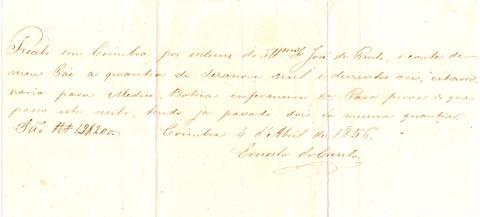 Recebi em Coimbra por ordem do Illmo Sr José do Canto, e conta de
meu Pae a quantia de dezanove mil e duzentos reis,
para Medico, Botica Para prova do que
passo este recibo, tendo já passado dois da mesma quantia.
São Rs 19$200. Coimbra 4 d'Abril de 1856.
Ernesto do Canto.